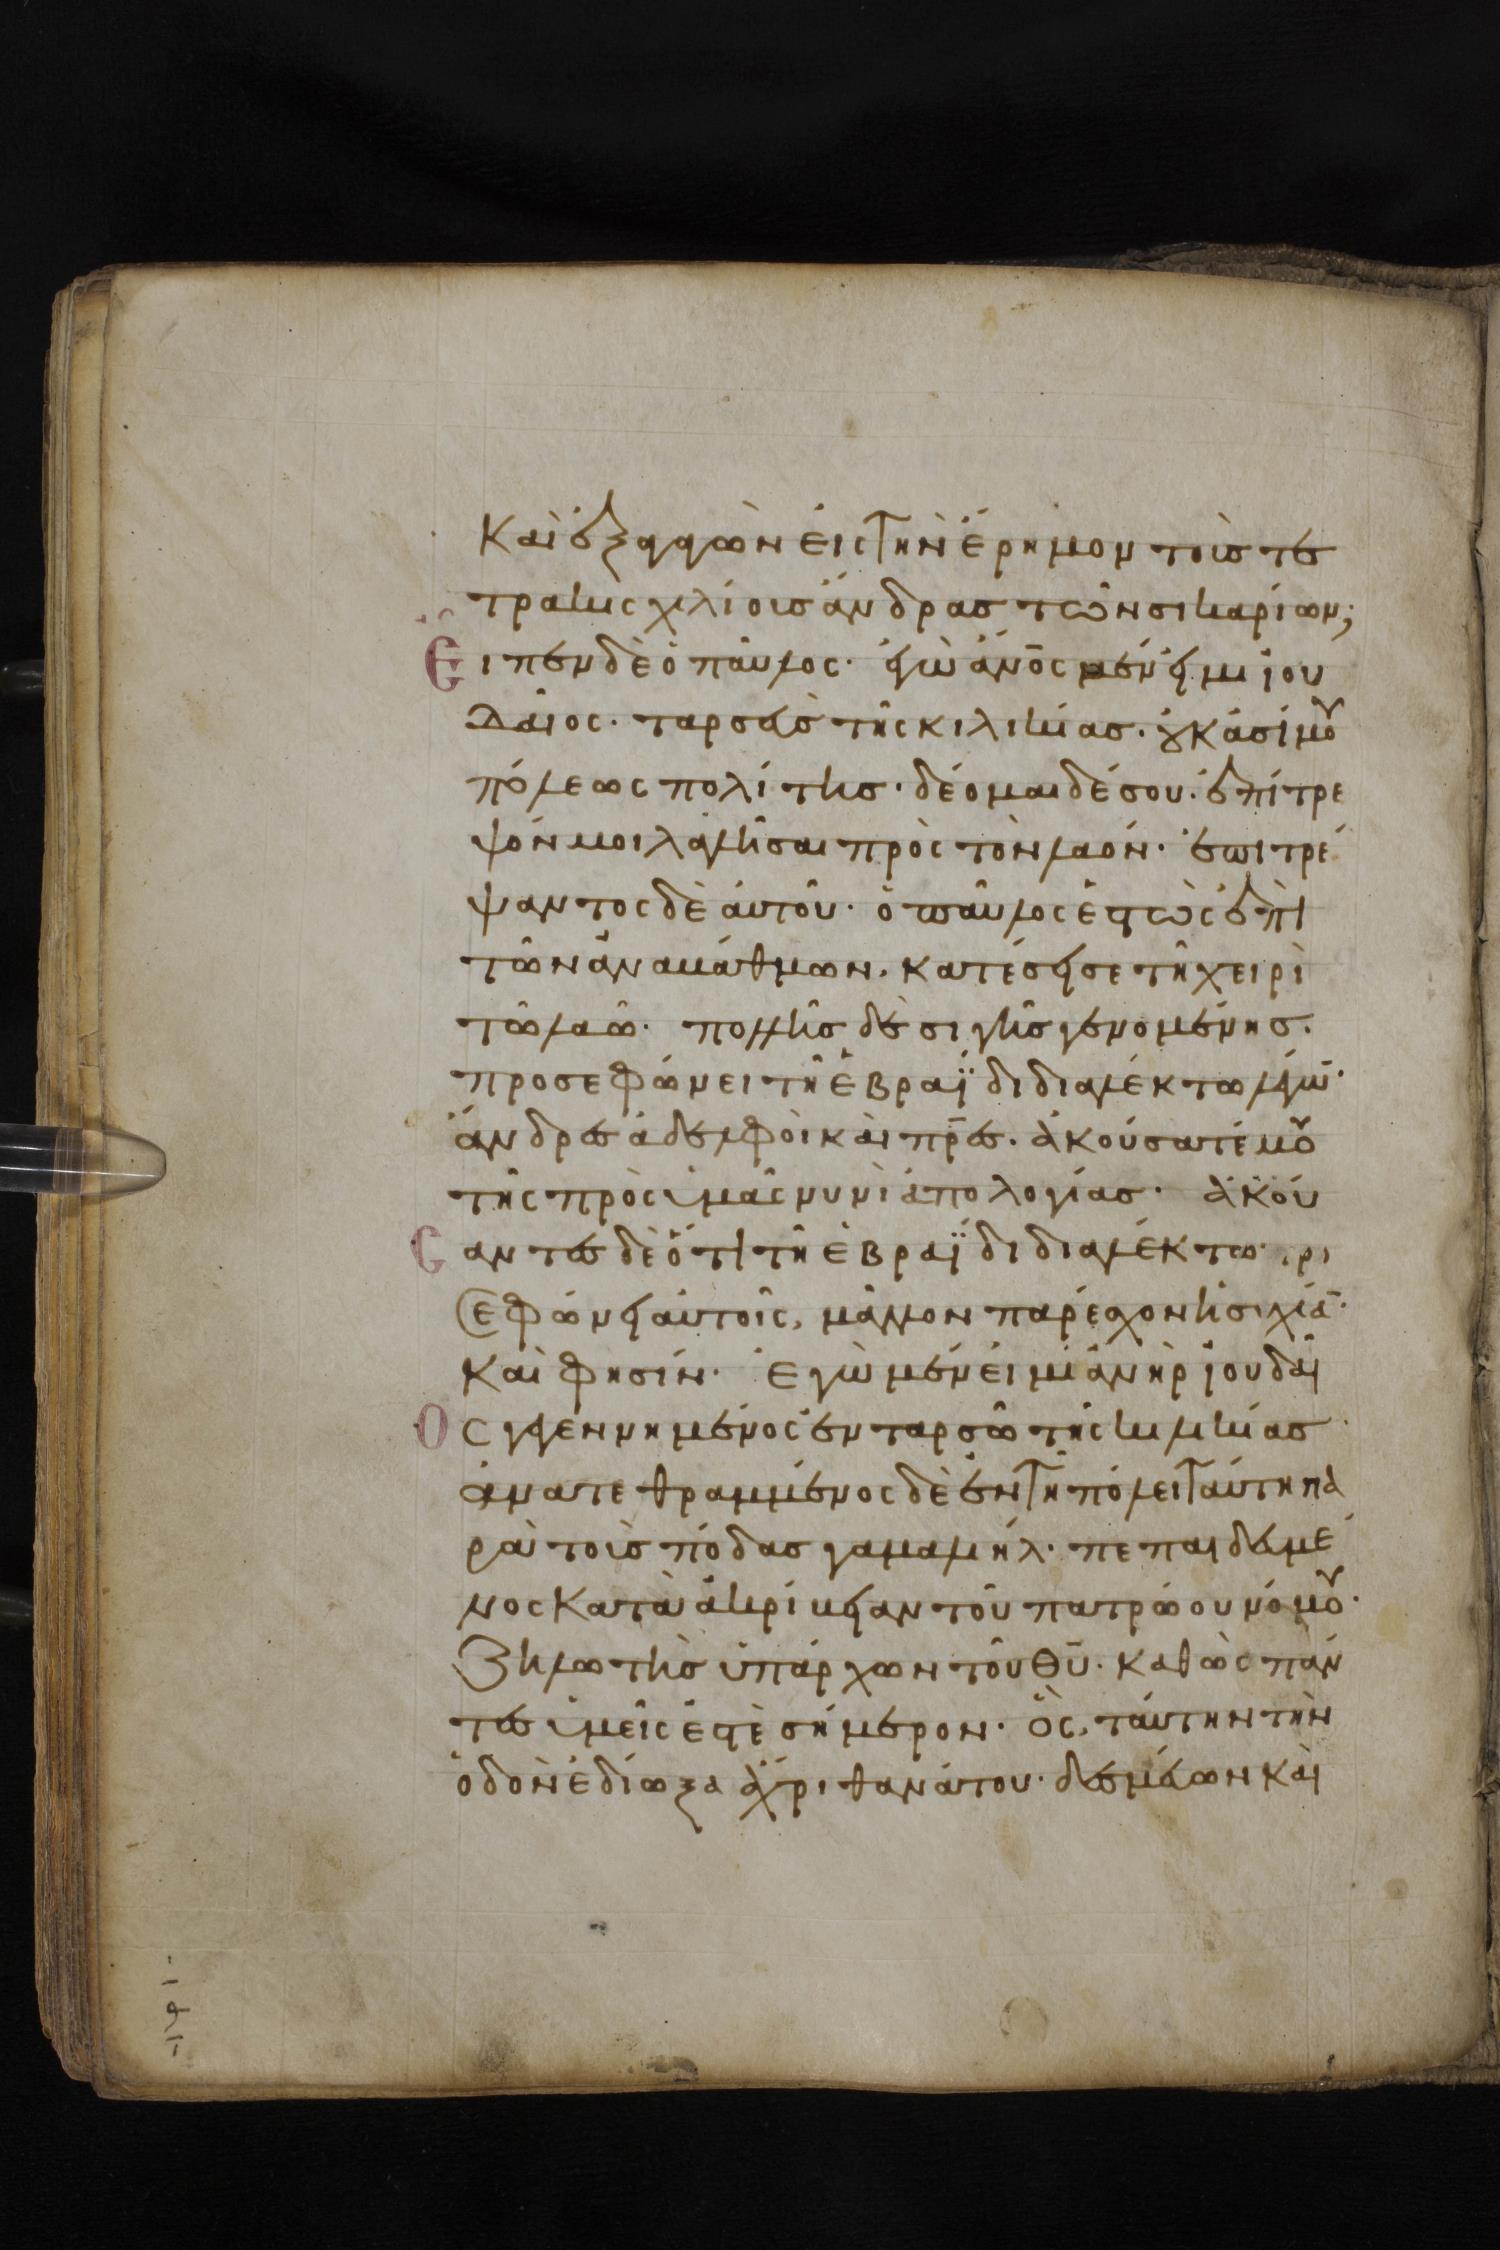 Καὶ ἐξαγαγὼν εἰς τὴν ἔρημον τοὺς τε
τρακισχιλίους ἄνδρας τῶν σικαρίων;
Εἶπεν δὲ ὁ παῦλος· ἐγὼ ἄνος μέν εἰμι ἰου
δαῖος· ταρσεὺς τῆς κιλικίας· οὐκ ἀσήμου
πόλεως πολίτης· δέομαι δέ σου· ἐπίτρε
ψόν μοι λαλῆσαι πρὸς τὸν λαόν· ἐπιτρέ
ψαντος δὲ αὐτοῦ· ὁ παῦλος ἑστὼς ἐπὶ
τῶν ἀναβάθμων· κατέσεισε τῆ χειρὶ
τῶ λαῶ· πολλῆς δὲ σιγῆς γενομένης·
προσεφώνει τῆ ἑβραΐδι διαλέκτω λέγων·
ἄνδρες ἀδελφοὶ καὶ πρες· ἀκούσατέ μου
τῆς πρὸς ὑμᾶς νυνὶ ἀπολογίας· ἀκού
Σαντες δὲ ὅτι τῆ ἑβραΐδι διαλέκτω προ
σεφώνει αὐτοῖς, μᾶλλον παρέσχον ἡσυχίαν·
Καὶ φησίν· Ἐγὼ μέν εἰμι ἀνὴρ ἰουδαῖ
Ος γεγεννημένος ἐν ταρσῶ τῆς κιλικίας
ἀνατεθραμμένος δὲ ἐν τῆ πόλει ταύτη πα
ρὰ τοὺς πόδας γαμαλιήλ· πεπαιδευμέ
νος κατὰ ἀκρίβειαν τοῦ πατρώου νόμου·
Ζηλωτὴς ὑπάρχων τοῦ θυ· καθὼς πάν
τες ὑμεῖς ἐστὲ σήμερον· ὃς, ταύτην τὴν
ὁδὸν ἐδίωξα ἄχρι θανάτου· δεσμεύων καὶ